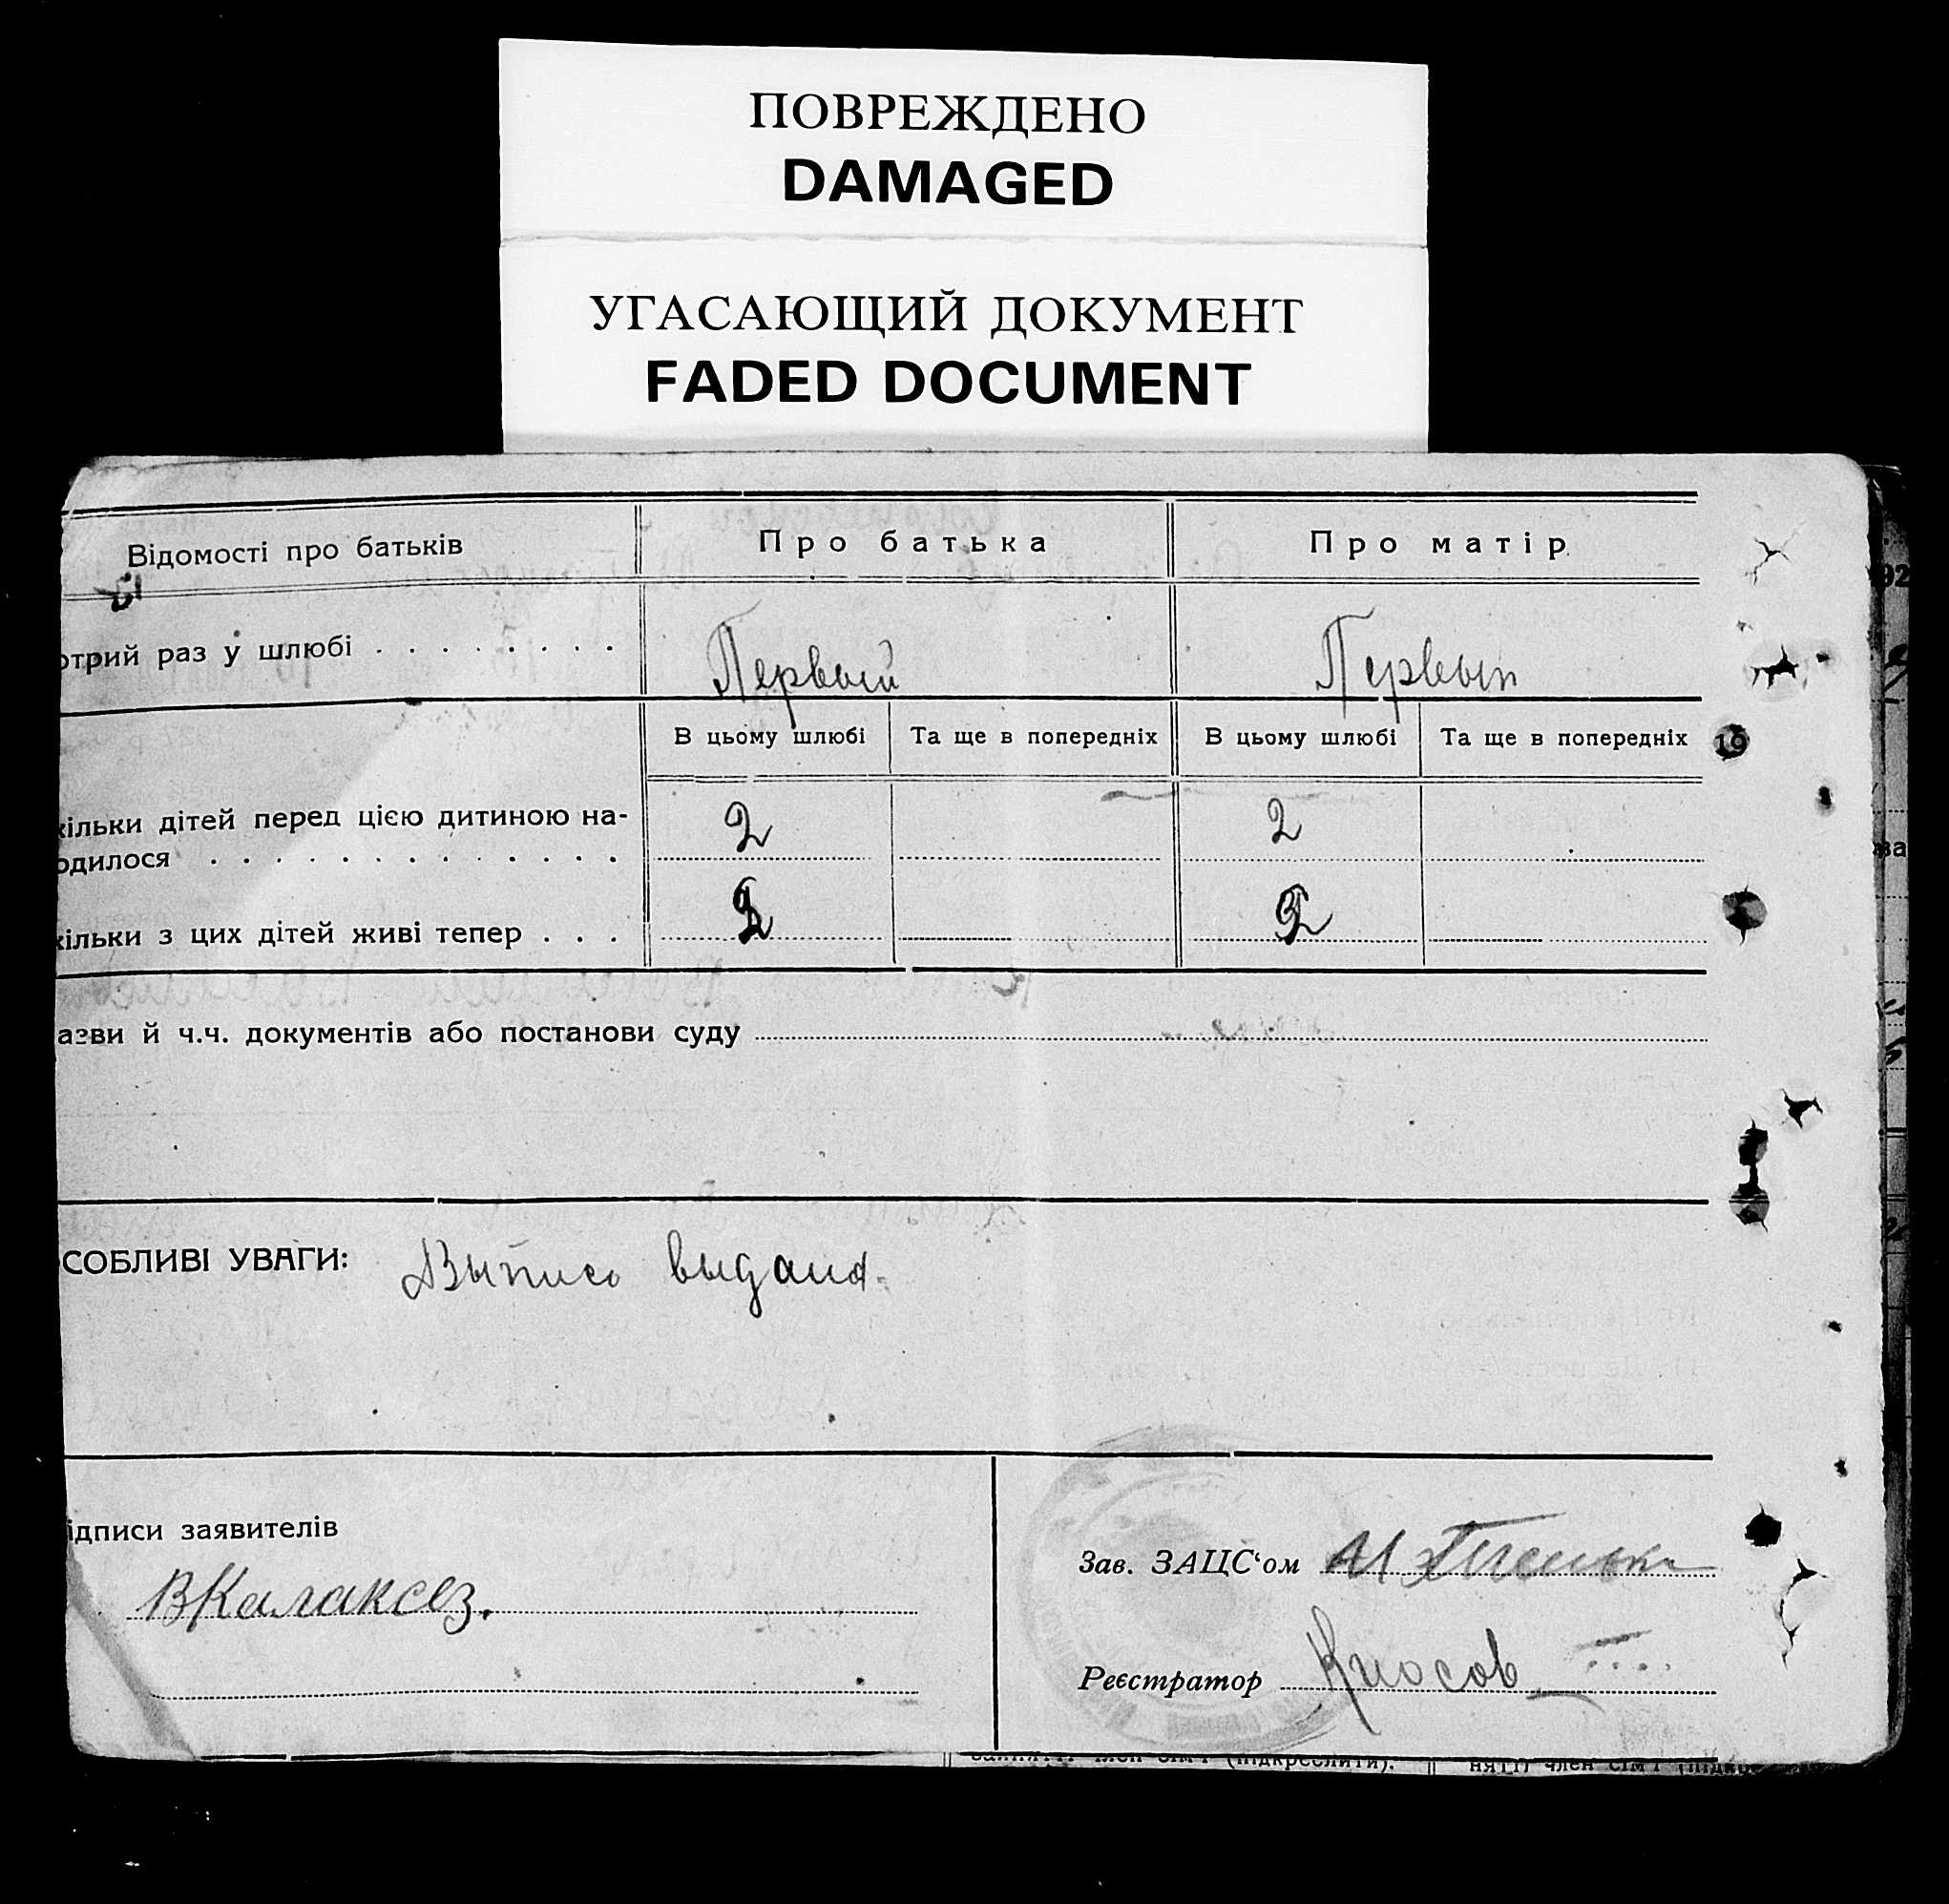 ПОВРЕЖДЕНО
DAMAGED
УГАСАЮЩИЙ ДОКУМЕНТ
FADED DOCUMENT
Відомості про батьків Про батька Про матір
отрий раз у шлюбі . . . . . . . . Первый Первый
В цьому шлюбі Та ще в попередніх В цьому шлюбі Та ще в попередніх
19
кільки дітей перед цією дитиною на-
одилося . . . . . . . . . . . . . 2 2
кільки з цих дітей живі тепер . . . 2 2
азви й ч.ч. документів або постанови суду
СОБЛИВІ УВАГИ: Выпись выдана.
ідписи заявителів
Зав. ЗАЦС‘ом
Реєстратор
заняттї член сім'ї (підкреслити). няттї член сім'ї